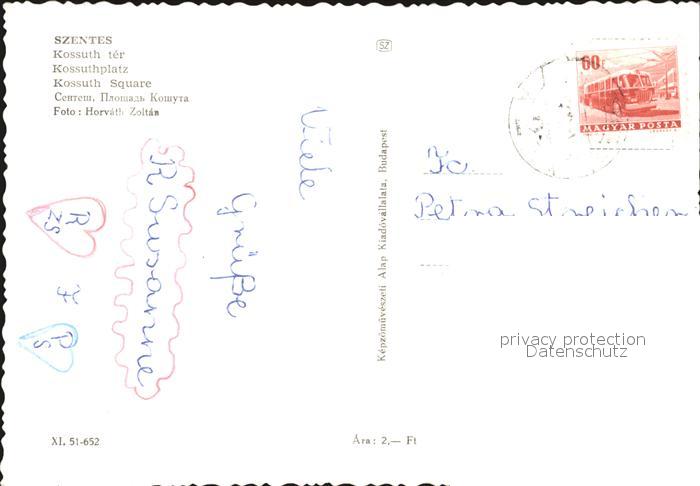 SZENTES
Kossuth tér
Kossuthplatz
Kossuth Square
Сентеш, Площадь Кошута
Foto : Horváth Zoltán
SZ
60f
MAGYAR POSTA
Viele
Grüße
R Susanne
R
ZS
PS
Petra Streicher
Képzőművészeti Alap Kiadóvállalata, Budapest
privacy protection
Datenschutz
XI. 51-652
Ára: 2,— Ft